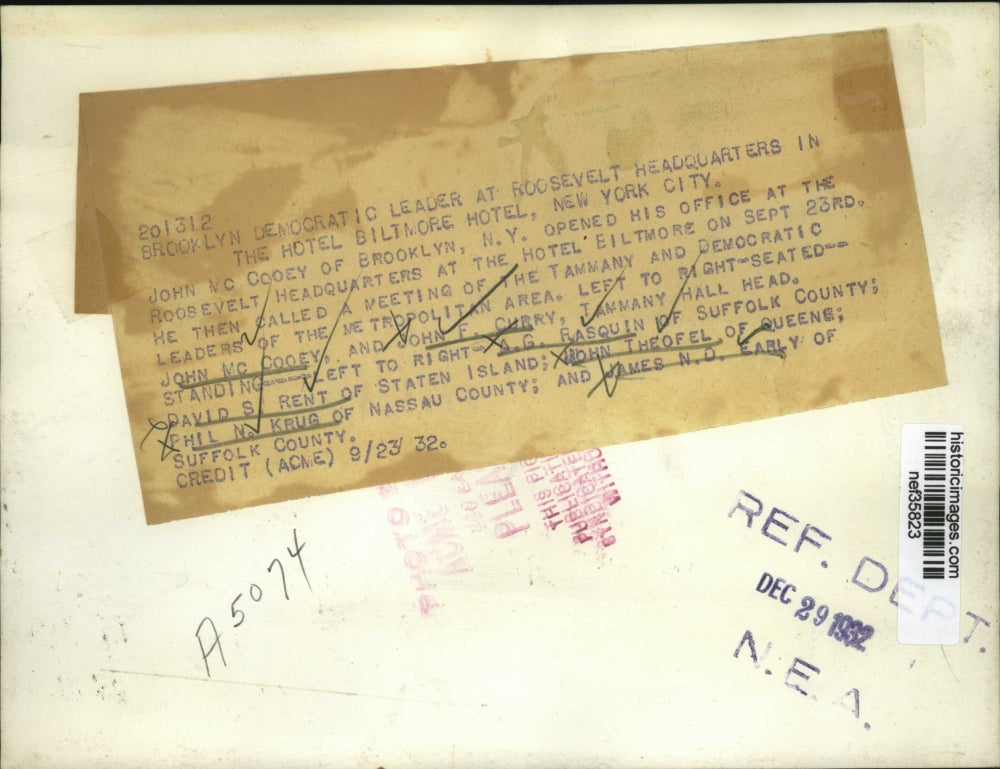 201312
BROOKLYN DEMOCRATIC LEADER AT ROOSEVELT HEADQUARTERS IN
THE HOTEL BILTMORE HOTEL, NEW YORK CITY.
JOHN MC COOEY OF BROOKLYN, N.Y. OPENED HIS OFFICE AT THE
ROOSEVELT HEADQUARTERS AT THE HOTEL BILTMORE ON SEPT 23RD.
HE THEN CALLED A MEETING OF THE TAMMANY AND DEMOCRATIC
LEADERS OF THE METROPOLITAN AREA. LEFT TO RIGHT-SEATED--
JOHN MC COOEY, AND JOHN F. CURRY, TAMMANY HALL HEAD.
STANDING----LEFT TO RIGHT-- A.G. RASQUIN OF SUFFOLK COUNTY;
DAVID S. RENT OF STATEN ISLAND; JOHN THEOFEL OF QUEENS;
PHIL N. KRUG OF NASSAU COUNTY; AND JAMES N.D. EARLY OF
SUFFOLK COUNTY.
CREDIT (ACME) 9/23/32.
PHOTO
ACME
PLEA
THIS PIC
A5074
REF. DEPT.
DEC 29 1932
N.E.A.
historicimages.com
nef35823